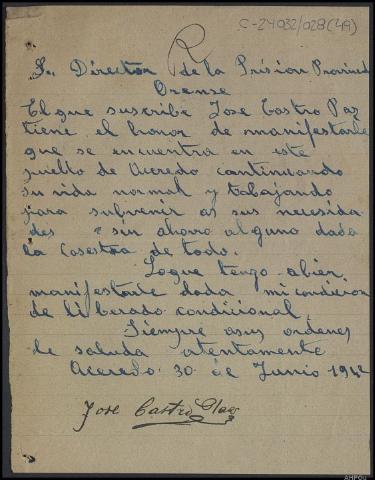 C-24032/028(49)
R
Sr. Director de la Prision Provincial
Orense
El que suscribe Jose Castro Paz
tiene el honor de manifestarle
que se encuentra en este
pueblo de Acevedo cantinuando
su vida normal y trabajando
para subvenir as sus necesida
des sin ahorro alguno dada
la Casestea de todo.
Loque tengo abien
manifestarle dada mi condicion
de liberado condicional.
Siempre asus ordenes
le saluda atentamente
Acevedo 30 de Junio 1942
Jose Castro
AHPOU